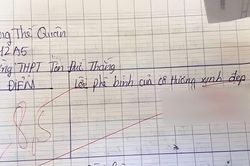 ng Thế Quân
12A5
ờng THPT Tôn Đức Thắng
ĐIỂM
Lời phê bình của cô Hường xinh đẹp
8,5